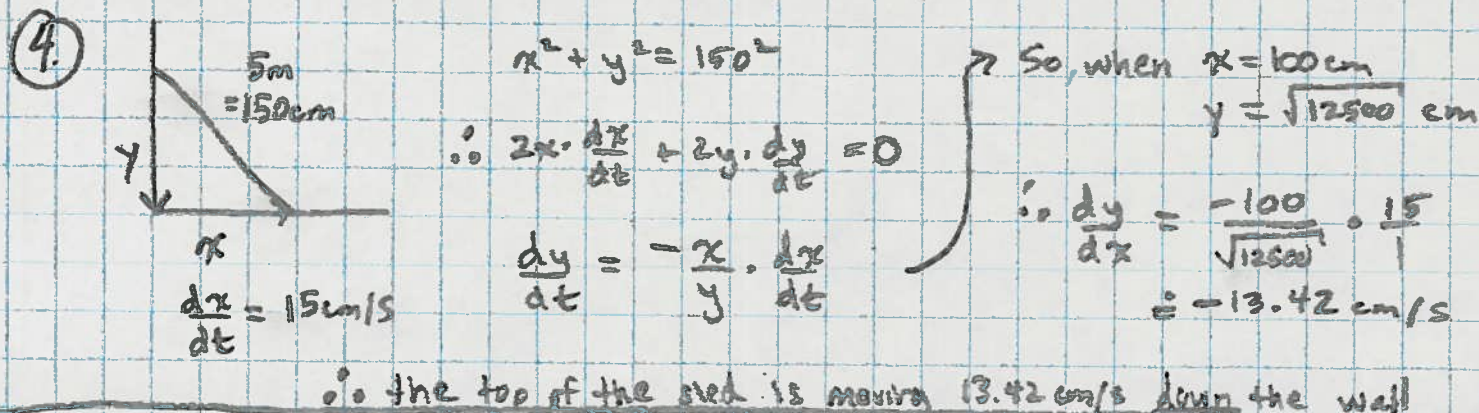 4.
5m
=150cm
y
x
dx/dt = 15cm/s
x² + y² = 150²
∴ 2x · dx/dt + 2y · dy/dt = 0
dy/dt = -x/y · dx/dt
So, when x = 100cm
y = √12500 cm
∴ dy/dx = -100/√12500 · 15/1
≐ -13.42 cm/s
∴ the top of the sled is moving 13.42 cm/s down the wall